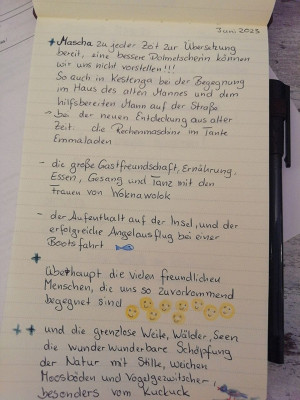 Juni 2025
Mascha zu jeder Zeit zur Übersetzung
bereit, eine bessere Dolmetscherin können
wir uns nicht vorstellen!!!
So auch in Kestenga bei der Begegnung
im Haus des alten Mannes und dem
hilfsbereiten Mann auf der Straße
- bei der neuen Entdeckung aus alter
Zeit: die Rechenmaschine im Tante
Emmaladen
- die große Gastfreundschaft, Ernährung,
Essen, Gesang und Tanz mit den
Frauen von Woknawolok
- der Aufenthalt auf der Insel, und der
erfolgreiche Angelausflug bei einer
Bootsfahrt
überhaupt die vielen freundlichen
Menschen, die uns so zuvorkommend
begegnet sind
und die grenzlose Weite, Wälder, Seen
die Wunder Wunderbare Schöpfung
der Natur mit Stille, weichen
Moosböden und Vogelgezwitscher,
besonders vom Kuckuck